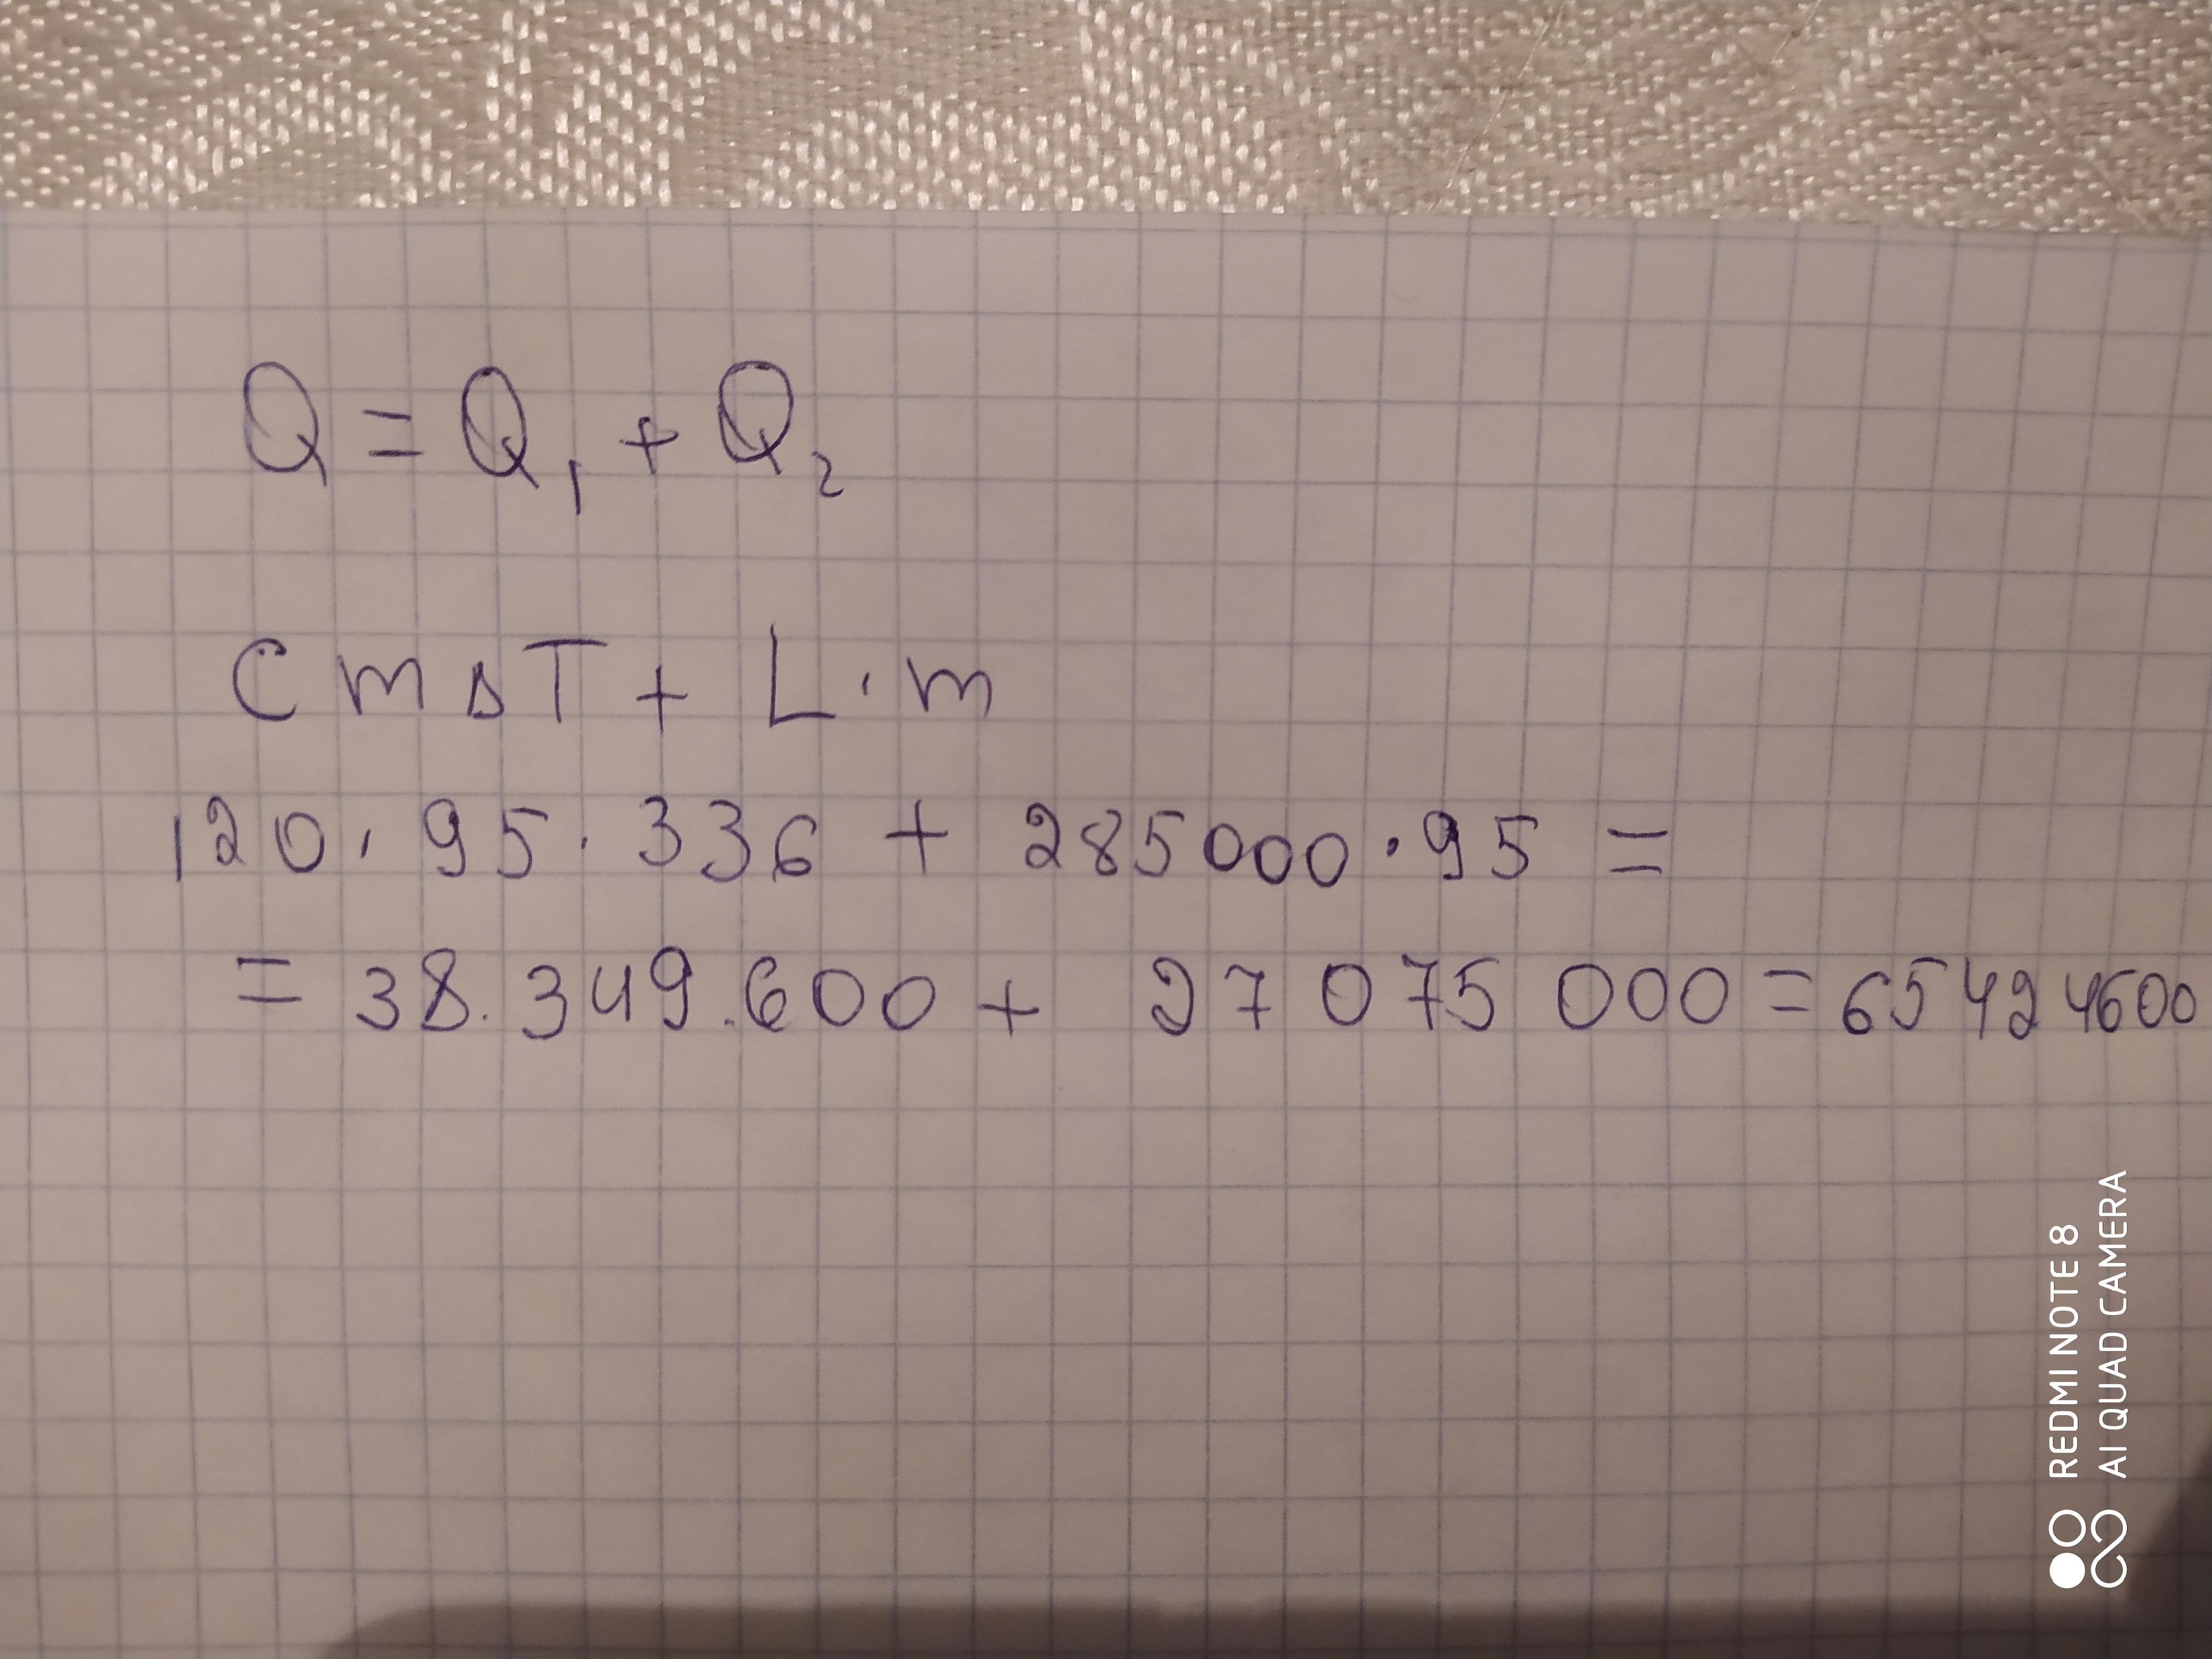 Q = Q₁ + Q₂
C m ΔT + L · m
120 · 95 · 336 + 285000 · 95 =
= 38.349.600 + 27 075 000 = 65 424600
REDMI NOTE 8
AI QUAD CAMERA